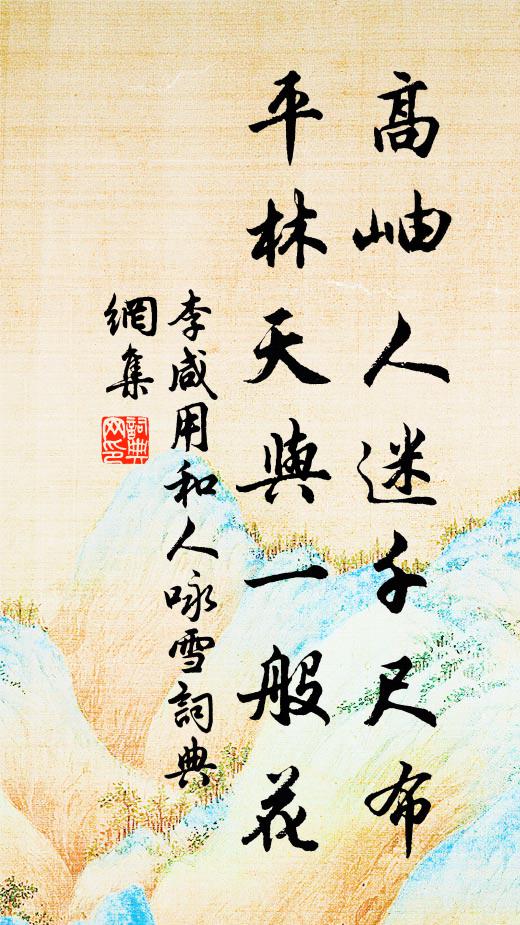 高岫人迷千尺布
平林天與一般花
李咸用和人咏雪詞典
網集
詞典
网印